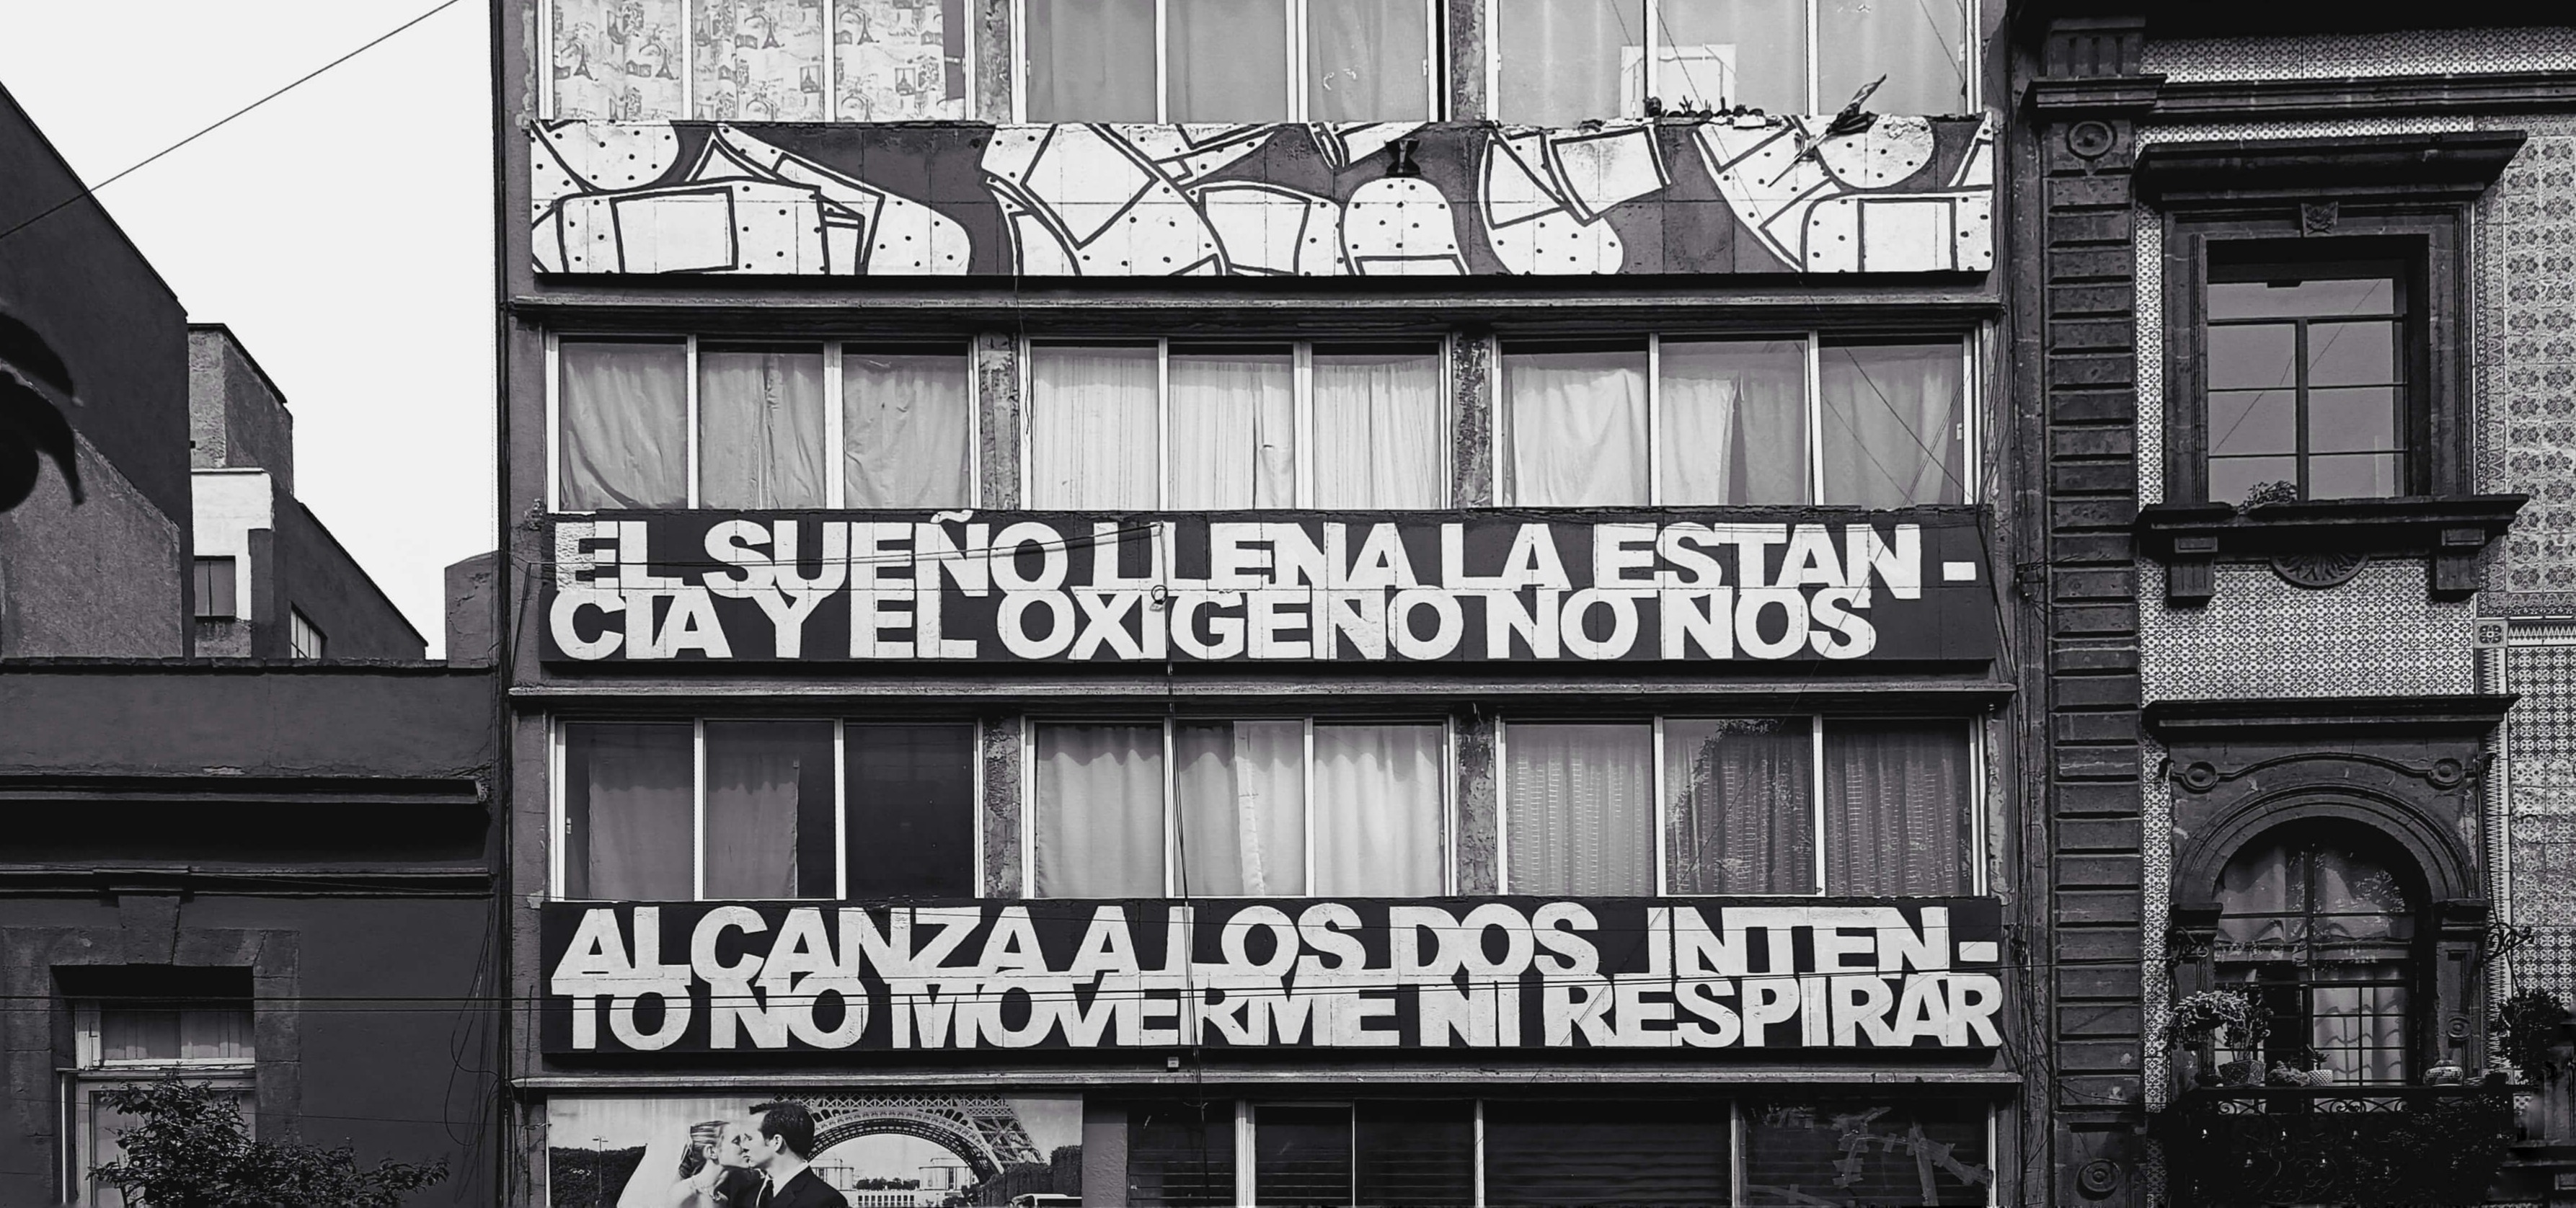 EL SUEÑO LLENA LA ESTAN-
CIA Y EL OXIGENO NO NOS
ALCANZA A LOS DOS INTEN-
TO NO MOVERME NI RESPIRAR